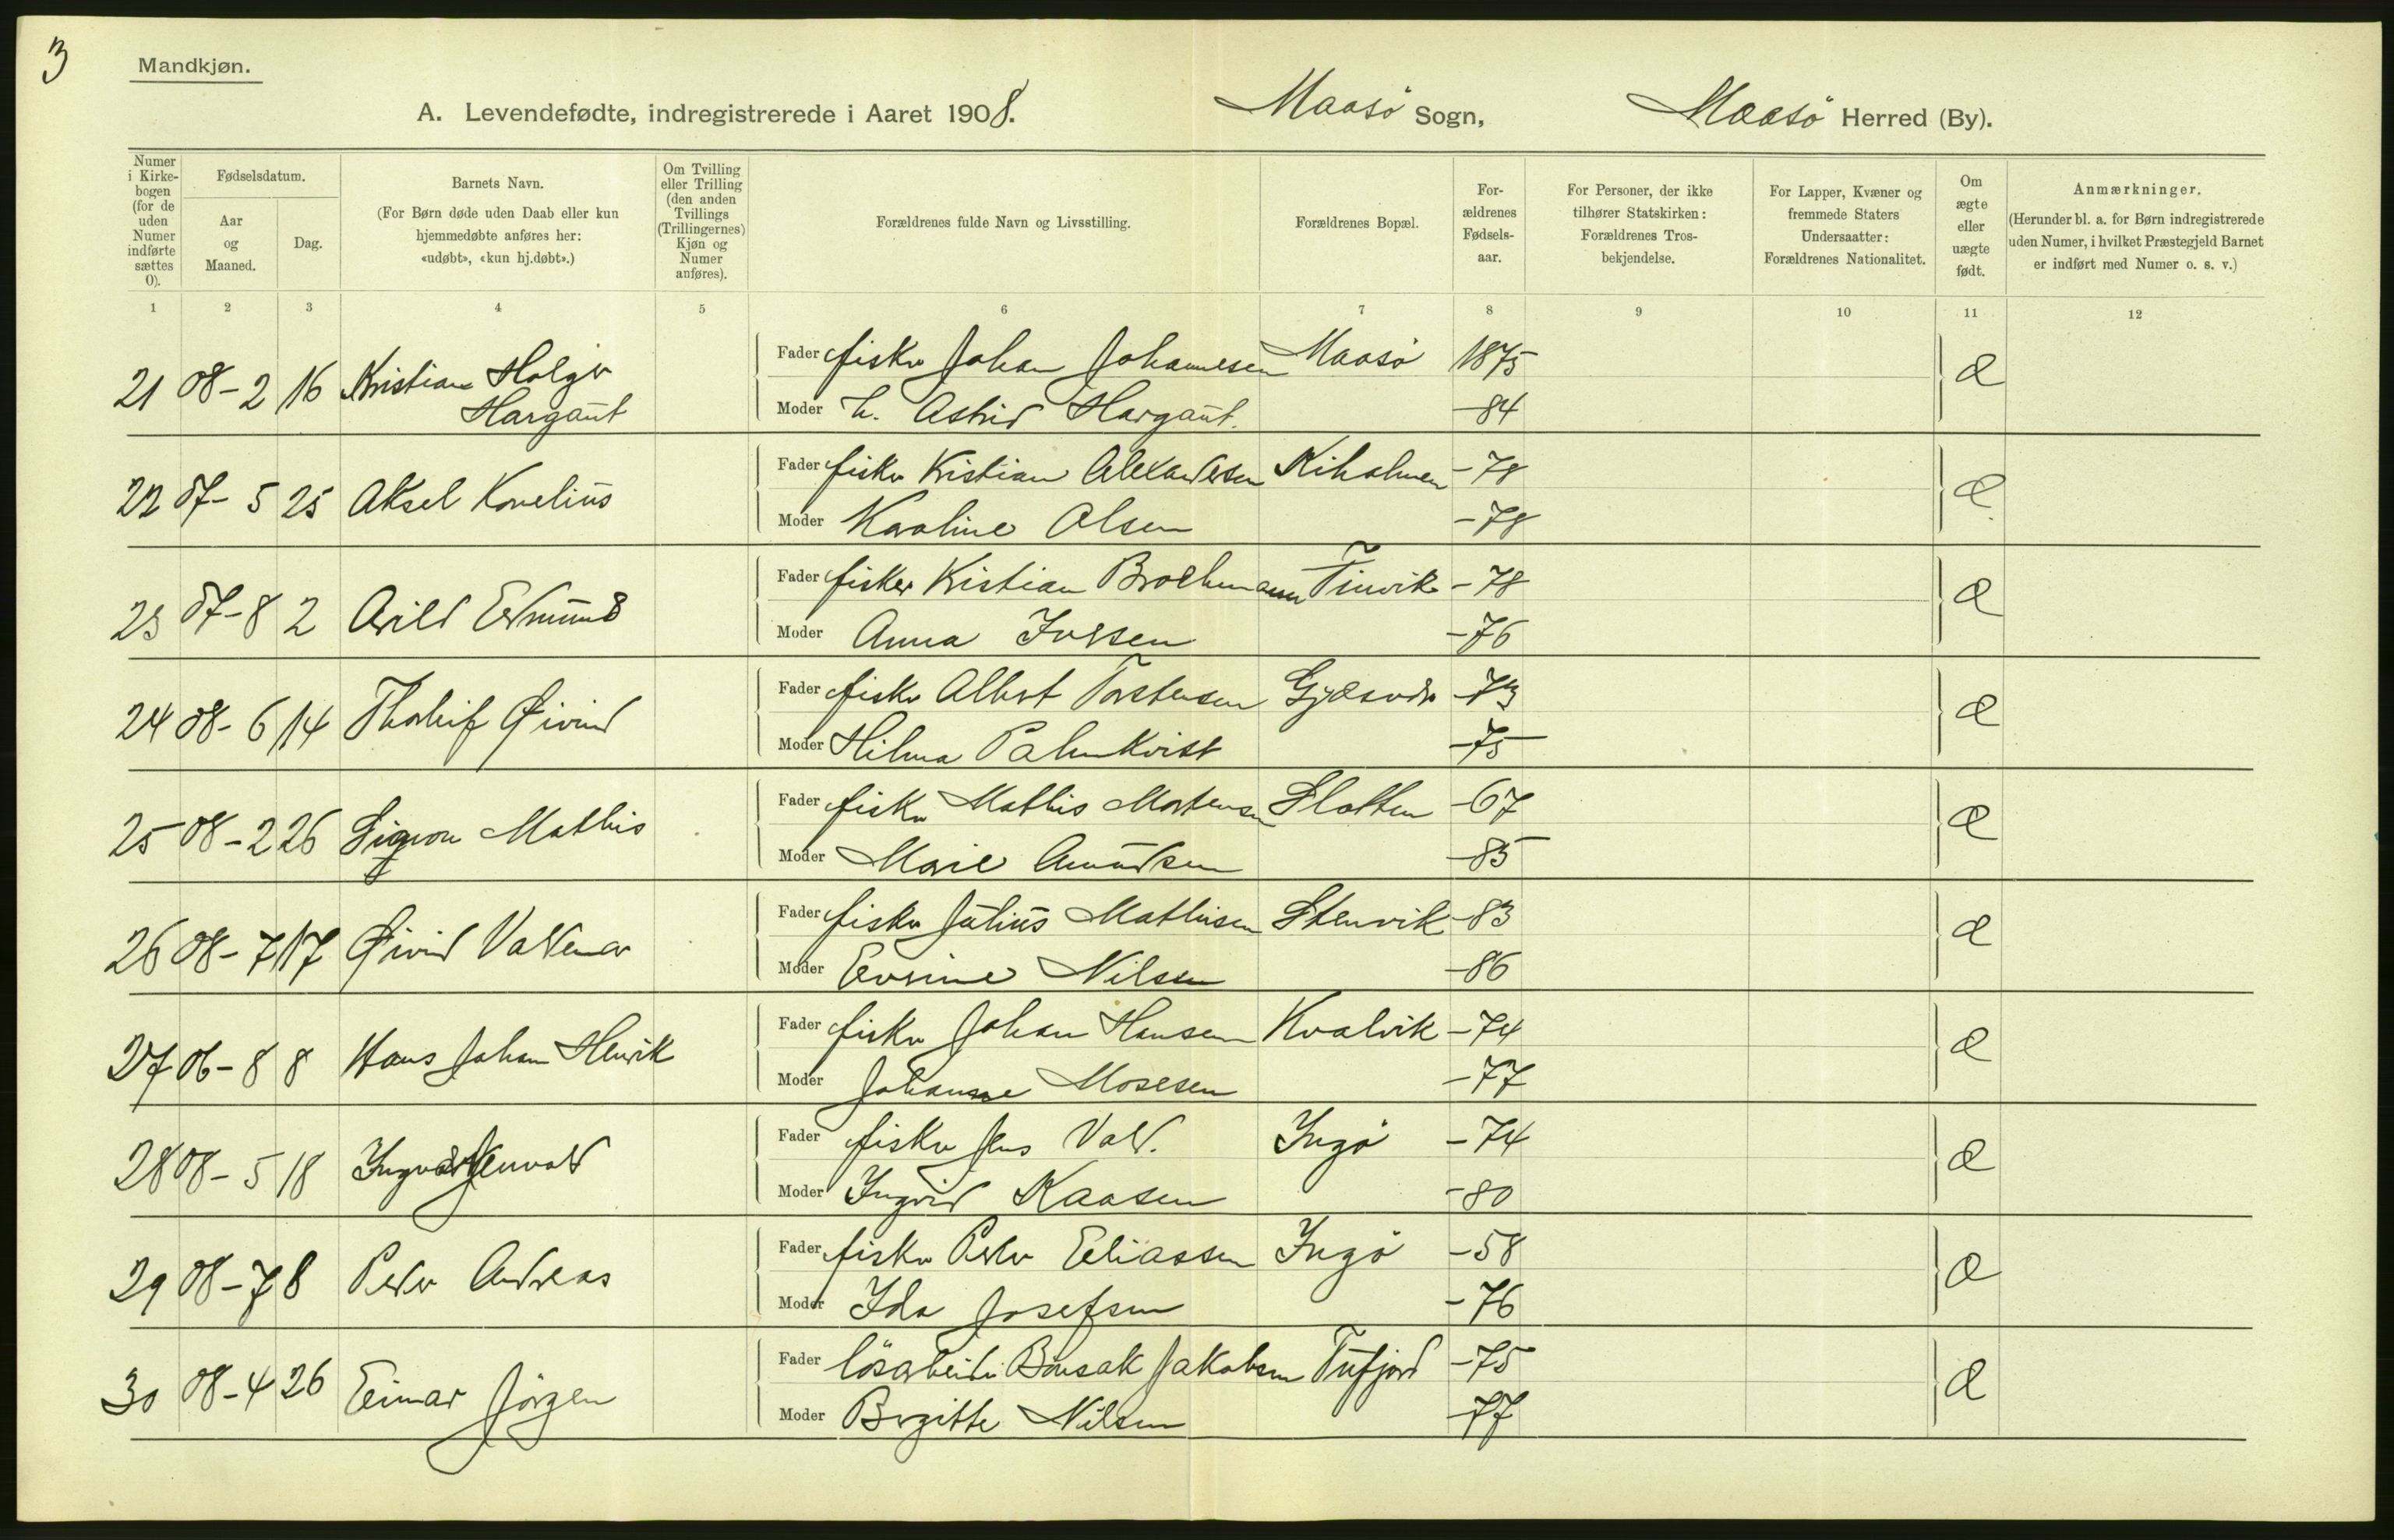 3
Mandkjøn.
A. Levendefødte, indregistrerede i Aaret 1908. Maasö Sogn, Maasö Herred (By).
Numer i Kirkebogen (for de uden Numer indførte sættes 0).
Fødselsdatum.
Aar og Maaned.
Dag.
Barnets Navn.
(For Børn døde uden Daab eller kun hjemmedøbte anføres her: «udøbt», «kun hj.døbt».)
Om Tvilling eller Trilling (den anden Tvillings (Trillingernes) Kjøn og Numer anføres).
Forældrenes fulde Navn og Livsstilling.
Forældrenes Bopæl.
Forældrenes Fødselsaar.
For Personer, der ikke tilhører Statskirken: Forældrenes Trosbekjendelse.
For Lapper, Kvæner og fremmede Staters Undersaatter: Forældrenes Nationalitet.
Om ægte eller uægte født.
Anmærkninger.
(Herunder bl. a. for Børn indregistrerede uden Numer, i hvilket Præstegjeld Barnet er indført med Numer o. s. v.)
1 2 3 4 5 6 7 8 9 10 11 12
21 08-2 16 Kristian Holger Hargaut Fader fisker Johan Johannesen Maasö 1875 Æ
Moder h. Astrid Hargaut. -84
22 07-5 25 Aksel Kornelius Fader fisker Kristian Alexandersen Kiholmen -78 Æ
Moder Karoline Olsen -78
23 07-8 2 Arild Edmund Fader fisker Kristian Brochmann -78 Æ
Moder Anna Iversen -76
24 08-6 14 Thorleif Øivind Fader fisker Albert Torstensen Gjæsvær -73 Æ
Moder Hilma Palmkvist -75
25 08-2 26 Sigvon Mathis Fader fisker Mathis Mortensen Slotten -67 Æ
Moder Marie Amundsen -85
26 08-7 17 Øivind Valdemar Fader fisker Julius Mathisen Stenvik -83 Æ
Moder Evrine Nilsen -86
27 06-8 8 Hans Johan Henrik Fader fisker Johan Hansen Kvalvik -74 Æ
Moder Johanne Mosesen -77
28 08-5 18 Ingvard Jenvald Fader fisker Jens Vald. Ingö -74 Æ
Moder Ingrid Kaasen -80
29 08-7 8 Peder Andreas Fader fisker Peder Eliassen Ingö -58 Æ
Moder Ida Josefsen -76
30 08-4 26 Einar Jörgen Fader lösarbeider Bonsak Jakobsen Tufjord -75 Æ
Moder Birgitte Nilsen -77